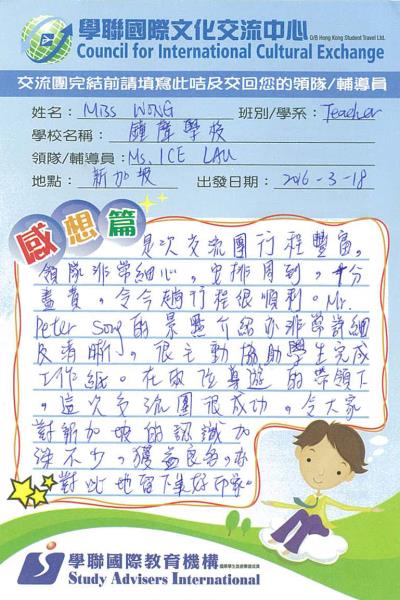 學聯國際文化交流中心 O/B Hong Kong Student Travel Ltd.
Council for International Cultural Exchange
交流團完結前請填寫此咭及交回您的領隊/輔導員
姓名: Miss WONG 班別/學系: Teacher
學校名稱: 鐘聲學校
領隊/輔導員: Ms. ICE LAU
地點: 新加坡 出發日期: 2016-3-18
感想篇
是次交流團行程豐富,
領隊非常細心,安排周到,十分
盡責,令今趟行程很順利。Mr.
Peter Song的景點介紹亦非常詳細
及清晰,很主動協助學生完成
工作紙。在兩位導遊的帶領下
,這次交流團很成功,令大家
對新加坡的認識加
深不少,獲益良多,亦
對此地留下美好印象。
學聯國際教育機構
Study Advisers International